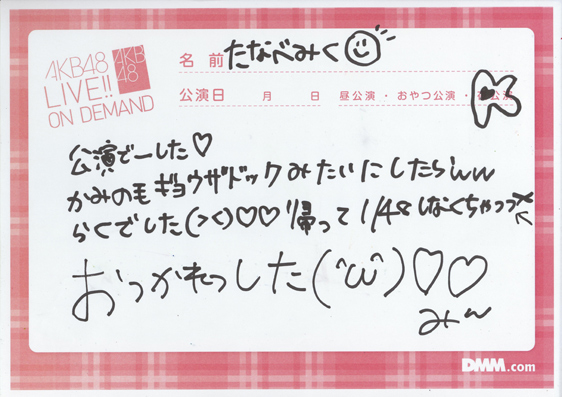 AKB48
LIVE!!
ON DEMAND
AKB
48
名 前 たなべみく
公演日 月 日 昼公演 ・ おやつ公演 ・ 公演
公演でーした♡
かみのモギョウザドックみたいにしたらんw
らくでした(><)♡♡帰って1/48しなくちゃっっ
おっかれっした(^ω^)♡♡
みー
DMM.com